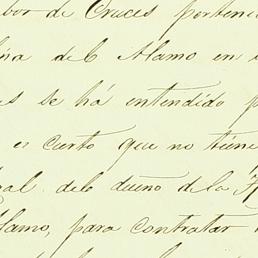 bor de Cruces pertenec
ña de lo Alamo en
es se há entendido p
es cierto que no tiene
al del dueno de la H
lamo, para contratar